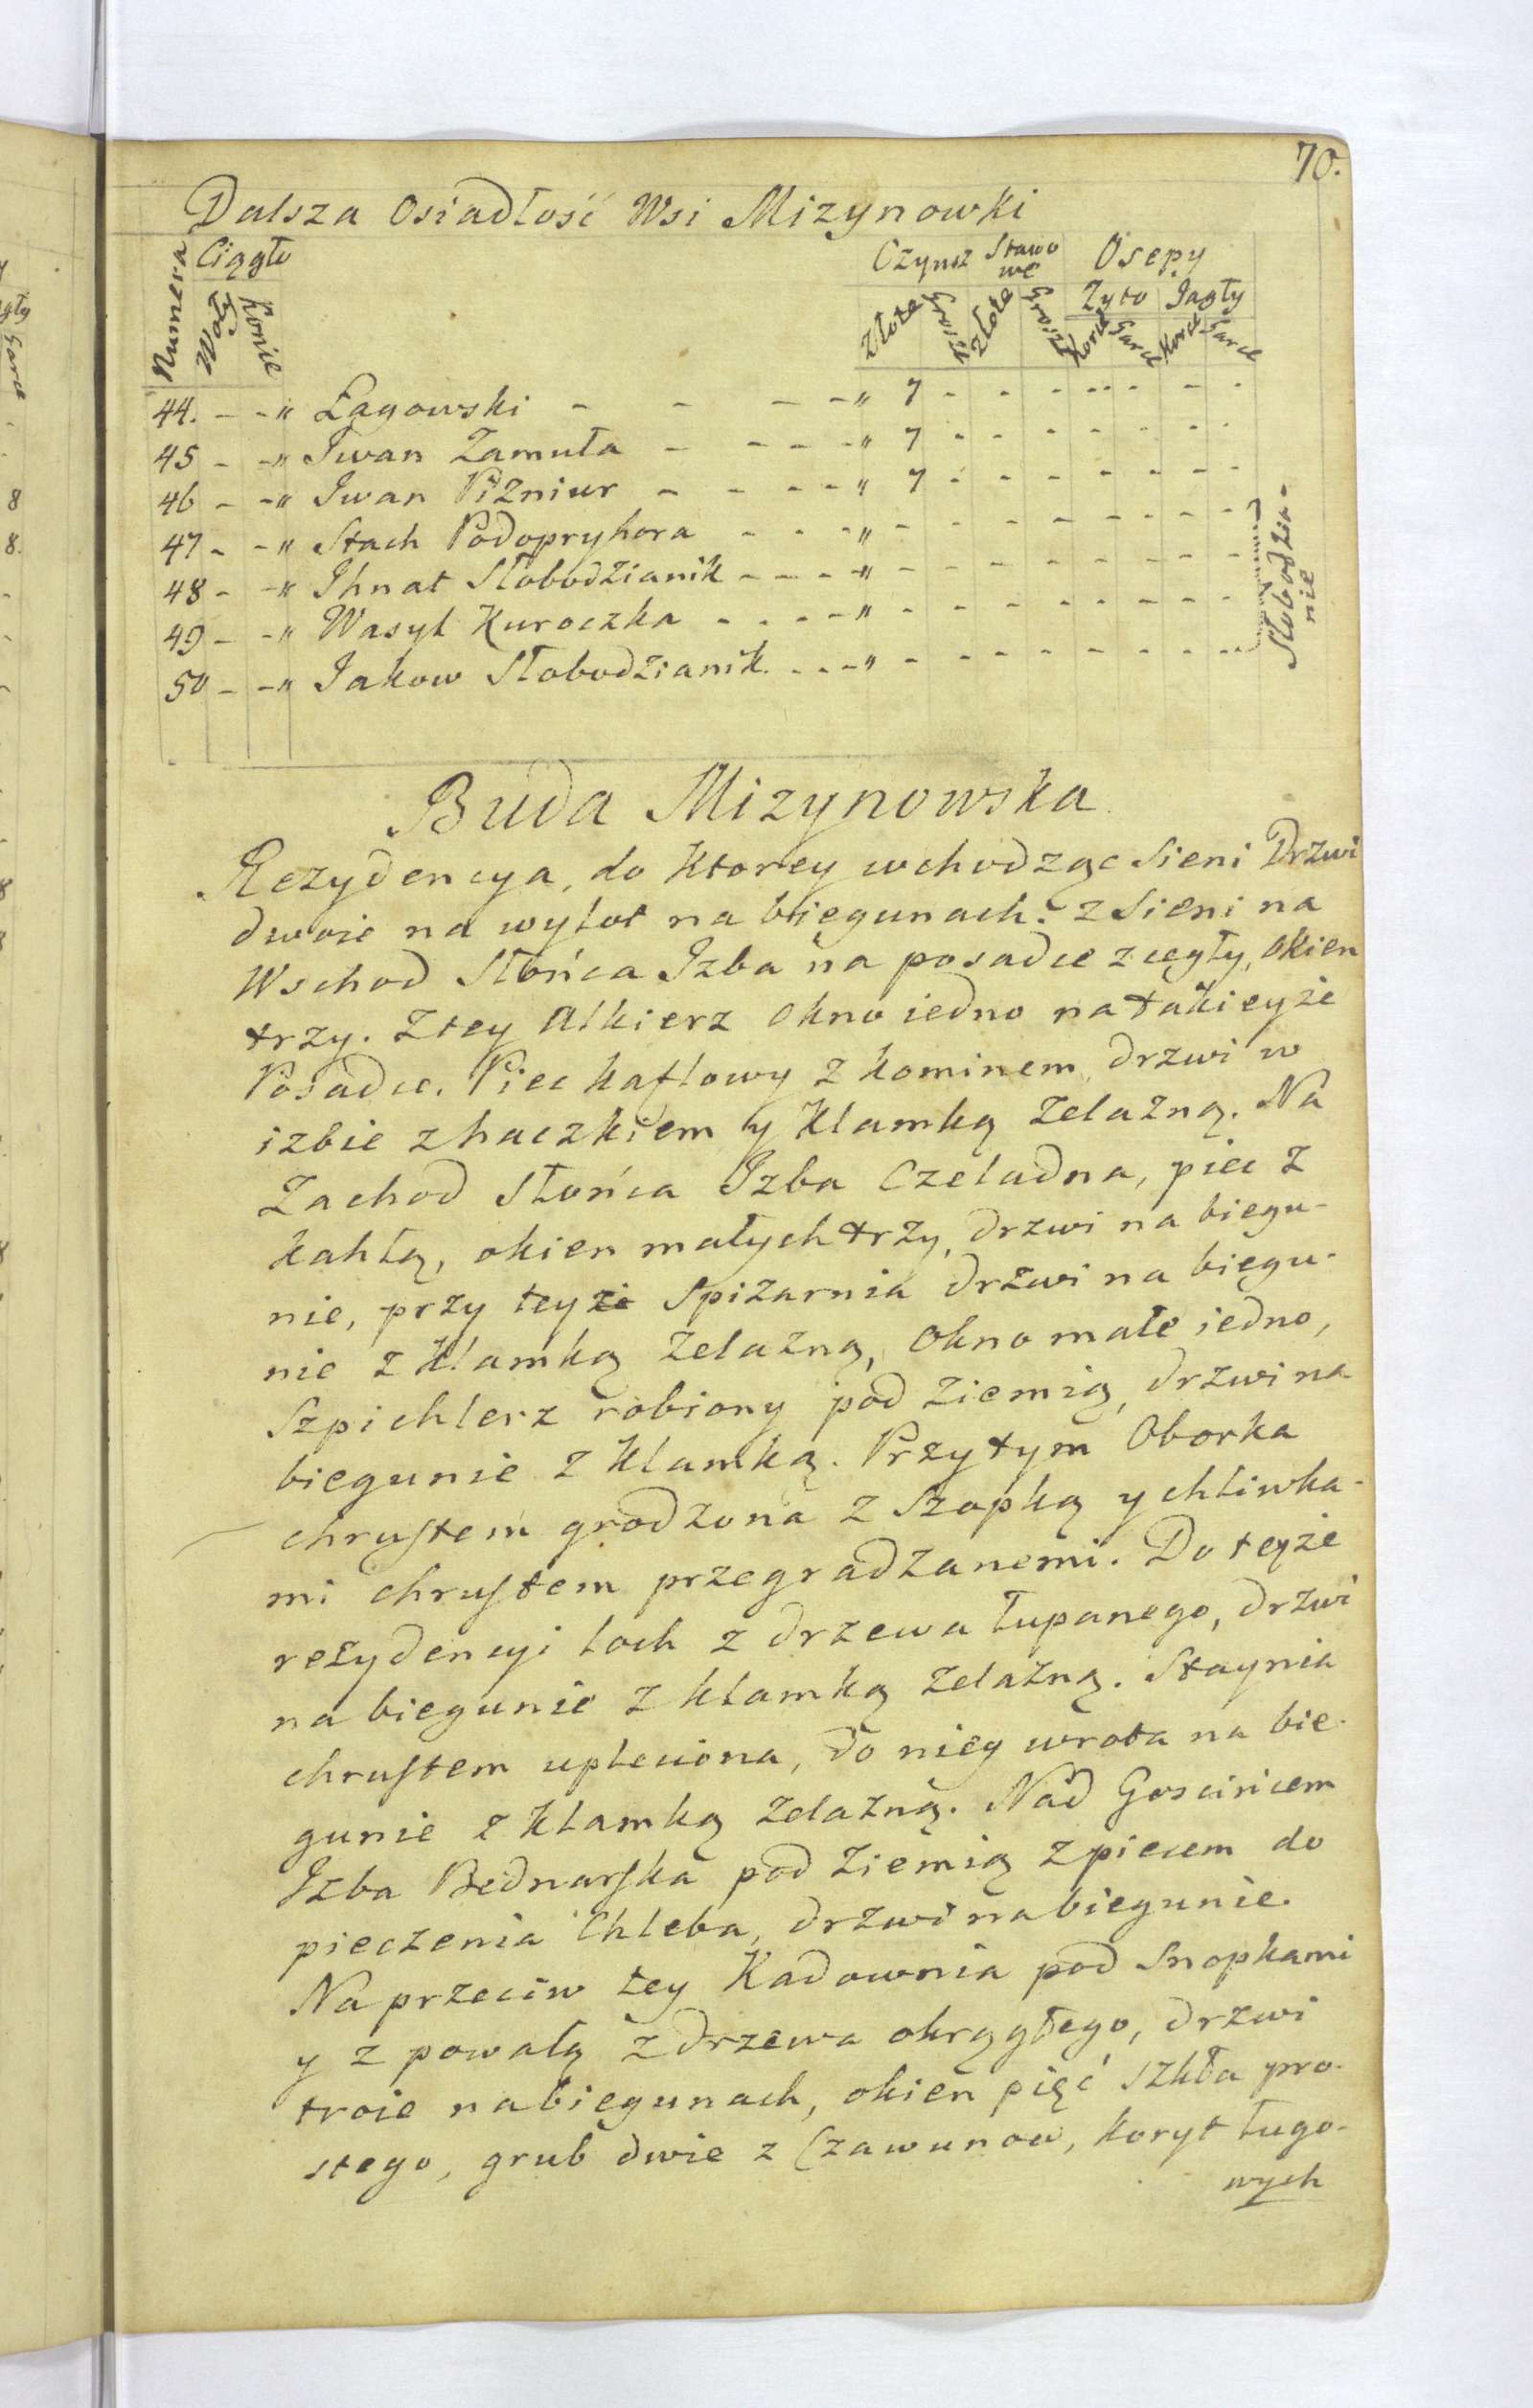 70.
Dalsza Osiadłość Wsi Mizynowki
Numera Ciągło Czynsz Stawo Osepy
we
Woły Konie Złote Grosze Złote Grosze Żyto Jagły
Korce Garce Korce Garce
44. - -" Łagowski - - - -" 7 - - - - - - - -
45 - -" Iwan Zamuła - - - -" 7 - - - - - - - -
46 - -" Iwan Pizniur - - - -" 7 - - - - - - - -
47 - -" Stach Podopryhora - - -" - - - - - - - - -
48 - -" Ihnat Słobodzianik - - - -" - - - - - - - - -
49 - -" Wasyl Kuroczka - - - -" - - - - - - - - -
50 - -" Jakow Słobodzianik - - -" - - - - - - - - -
Słobodzia-
nie
Buda Mizynowska
Rezydencya, do ktorey wchodząc Sieni Drzwi
dwoie na wylot na biegunach. z Sieni na
Wschod Słońca Izba na posadce z cegły, okien
trzy. Z tey Alkierz okno iedno na takieyże
Posadce. Piec kaflowy z kominem, drzwi w
izbie z haczkiem y klamką żelazną. Na
Zachod Słońca Izba Czeladna, piec z
kahlą, okien małych trzy, drzwi na biegu-
nie, przy teyże Spiżarnia drzwi na biegu-
nie z klamką żelazną, Okno małe iedno,
Szpichlerz robiony pod Ziemią, drzwi na
biegunie z klamką. Przytym Oborka
chrustem grodzona z Szopką y chliwka-
mi chrustem przegradzanemi. Do teyże
rezydencyi loch z drzewa łupanego, drzwi
na biegunie z klamką żelazną. Staynia
chrustem upleciona, do niey wrota na bie-
gunie z klamką żelazną. Nad Gościńcem
Izba Bednarska pod Ziemią z piecem do
pieczenia Chleba, drzwi na biegunie.
Naprzeciw tey Kadownia pod Snopkami
y z powałą z drzewa okrągłego, drzwi
troie na biegunach, okien pięć szkła pro-
stego, grub dwie z Czawunow, koryt ługo-
wych